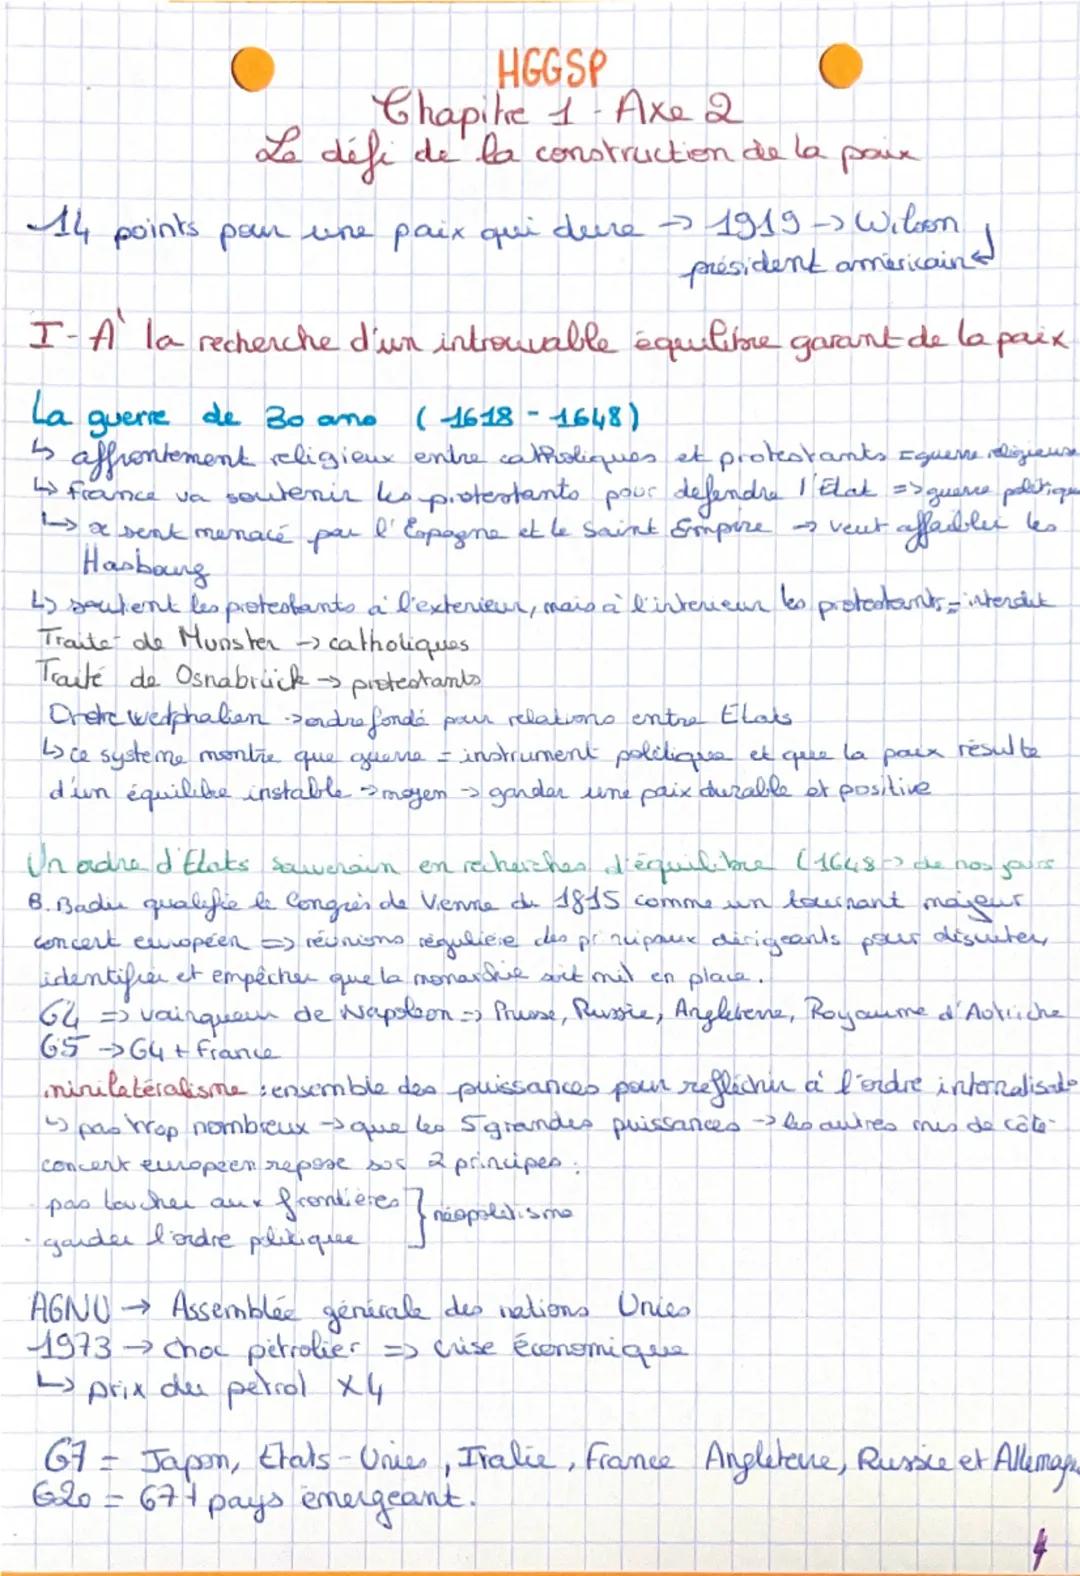 HGGSP
Chapitre 1 - Axe 2
Le défi de la construction de la paix
14 points pour une paix qui dure → 1919 → Wilson
président américain
I - A' la recherche d'un introuvable équilibre garant de la paix
La guerre de 30 ans (1618 - 1648)
↳ affrontement religieux entre catholiques et protestants = guerre religieuse
↳ France va soutenir les protestants pour défendre l'Etat => guerre politique
↳ se sent menacé par l'Espagne et le Saint Empire → veut affaiblir les
Hasbourg
↳ soutient les protestants à l'exterieur, mais à l'interieur les protestants = interdit
Traité de Munster → catholiques
Traité de Osnabrück → protestants
Ordre westphalien → ordre fondé par relations entre Etats
↳ ce système montre que guerre = instrument politique et que la paix résulte
d'un équilibre instable → moyen → garder une paix durable et positive
Un ordre d'Etats souverain en recherches d'équilibre (1648 → de nos jours
B. Badie qualifie le Congrès de Vienne du 1815 comme un tournant majeur
concert européen => réunions régulière des principaux dirigeants pour discuter,
identifier et empêcher que la monarchie soit mit en place.
G4 => vainqueur de Napoléon => Prusse, Russie, Angleterre, Royaume d'Autriche
G5 → G4 + France
minilatéralisme : ensemble des puissances pour réfléchir à l'ordre
↳ pas trop nombreux → que les 5 grandes puissances → les autres mis de côté
concert européen repose sur 2 principes :
· pas toucher aux frontières
· garder l'ordre plitique
} néopolitisme
AGNU → Assemblée générale des nations Unies
1973 → choc pétrolier => crise économique
↳ prix du petrol x4
G7 = Japon, Etats-Unies, Italie, France Angleterre, Russie et Allemagne
G20 = G7 + pays émergeant.